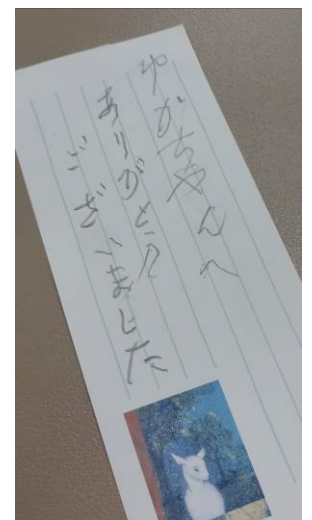 ゆかちゃんへ
ありがとう
ございました